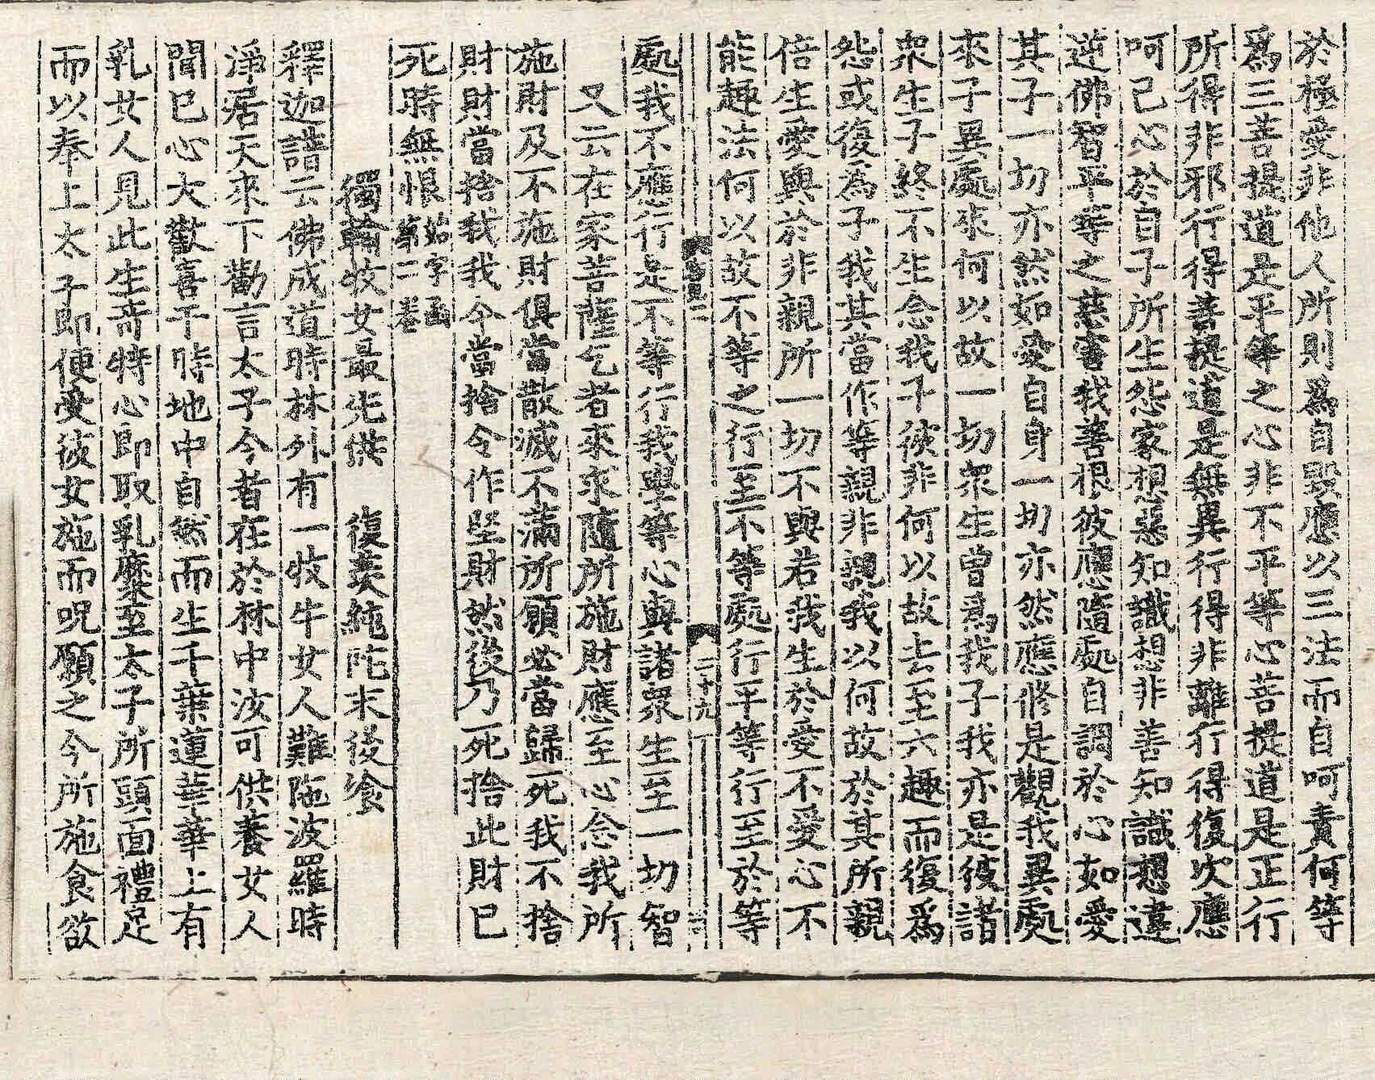 於極愛非他人所則爲自毀應以三法而自呵責何等
爲三菩提道是平等之心非不平等心菩提道是正行
所得非邪行得菩提道是無異行得非離行得復次應
呵己心於自子所生怨家想惡知識想非善知識想違
逆佛智平等之慈害我善根彼應隨處自調於心如愛
其子一切亦然如愛自身一切亦然應修是觀我異處
來子異處來何以故一切衆生曾爲我子我亦是彼諸
衆生子終不生念我子彼非何以故去至六趣而復爲
怨或復爲子我其當作等親非親我以何故於其所親
倍生愛與於非親所一切不與若我生於愛不愛心不
能趣法何以故不等之行至不等處行平等行至於等
二十九
處我不應行是不等行我學等心與諸衆生至一切智
又云在家菩薩乞者來求隨所施財應至心念我所
施財及不施財俱當散滅不滿所願必當歸死我不捨
財財當捨我我今當捨令作堅財然後乃死捨此財已
死時無恨始字函第二卷
獨輪牧女最先供　復羡純陀末後飡
釋迦譜云佛成道時林外有一牧牛女人難陁波羅時
淨居天來下勸言太子今者在於林中汝可供養女人
聞已心大歡喜于時地中自然而生千葉蓮華華上有
乳女人見此生奇特心即取乳麋至太子所頭面禮足
而以奉上太子即便受彼女施而呪願之今所施食欲